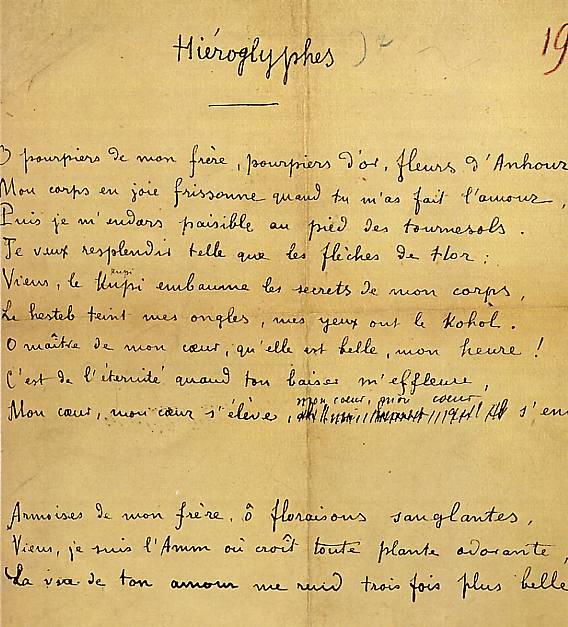 Hiéroglyphes
19
O pourpiers de mon frère, pourpiers d'or, fleurs d'Anhour
Mon corps en joie frissonne quand tu m'as fait l'amour,
Puis je m'endors paisible au pied des tournesols.
Je veux resplendir telle que les flèches de Hor ;
Viens, le Kupi embaume les secrets de mon corps,
Le hesteb teint mes ongles, mes yeux ont le Kohol.
O maître de mon cœur, qu'elle est belle, mon heure !
C'est de l'éternité quand ton baiser m'effleure,
mon cœur, mon cœur
Mon cœur, mon cœur s'élève, s'en
Armoises de mon frère, ô floraisons sanglantes,
Viens, je suis l'Amm où croît toute plante odorante,
La vue de ton amour me rend trois fois plus belle